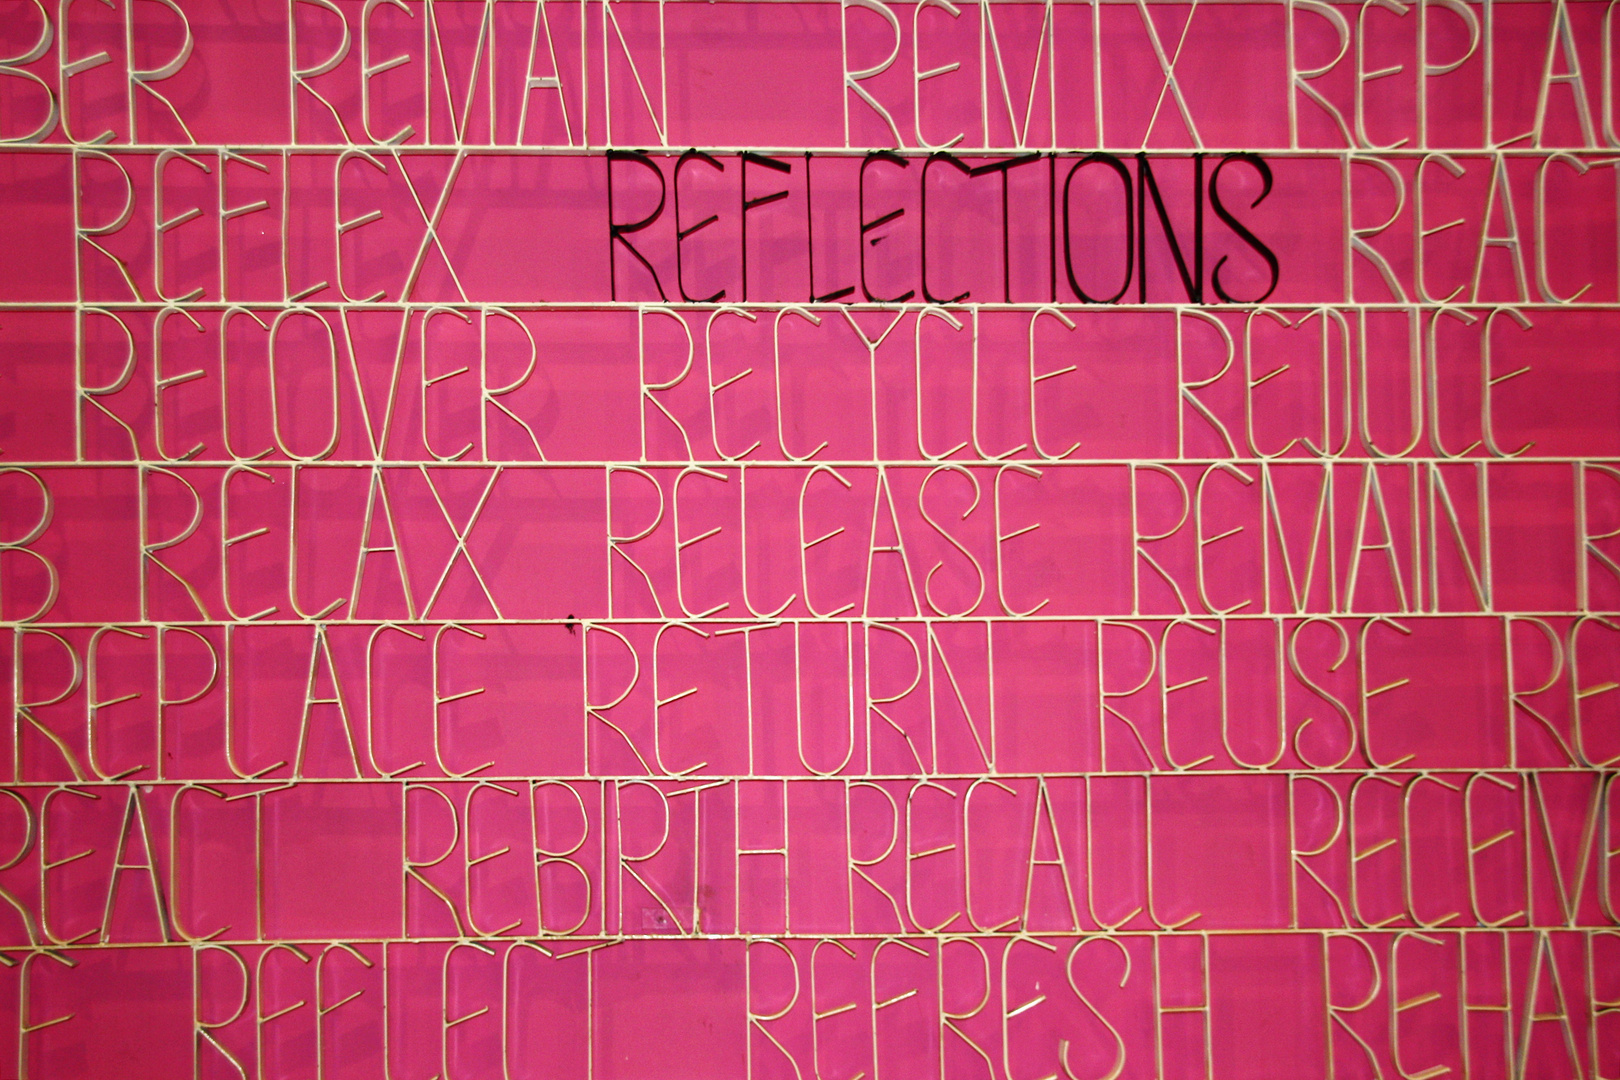 BER REMAIN REMIX REPLAC
REFLEX REFLECTIONS REACT
RECOVER RECYCLE REDUCE
B RELAX RELEASE REMAIN R
REPLACE RETURN REUSE RE
REACT REBIRTH RECALL RECEIVE
F REFLECT REFRESH REHAB